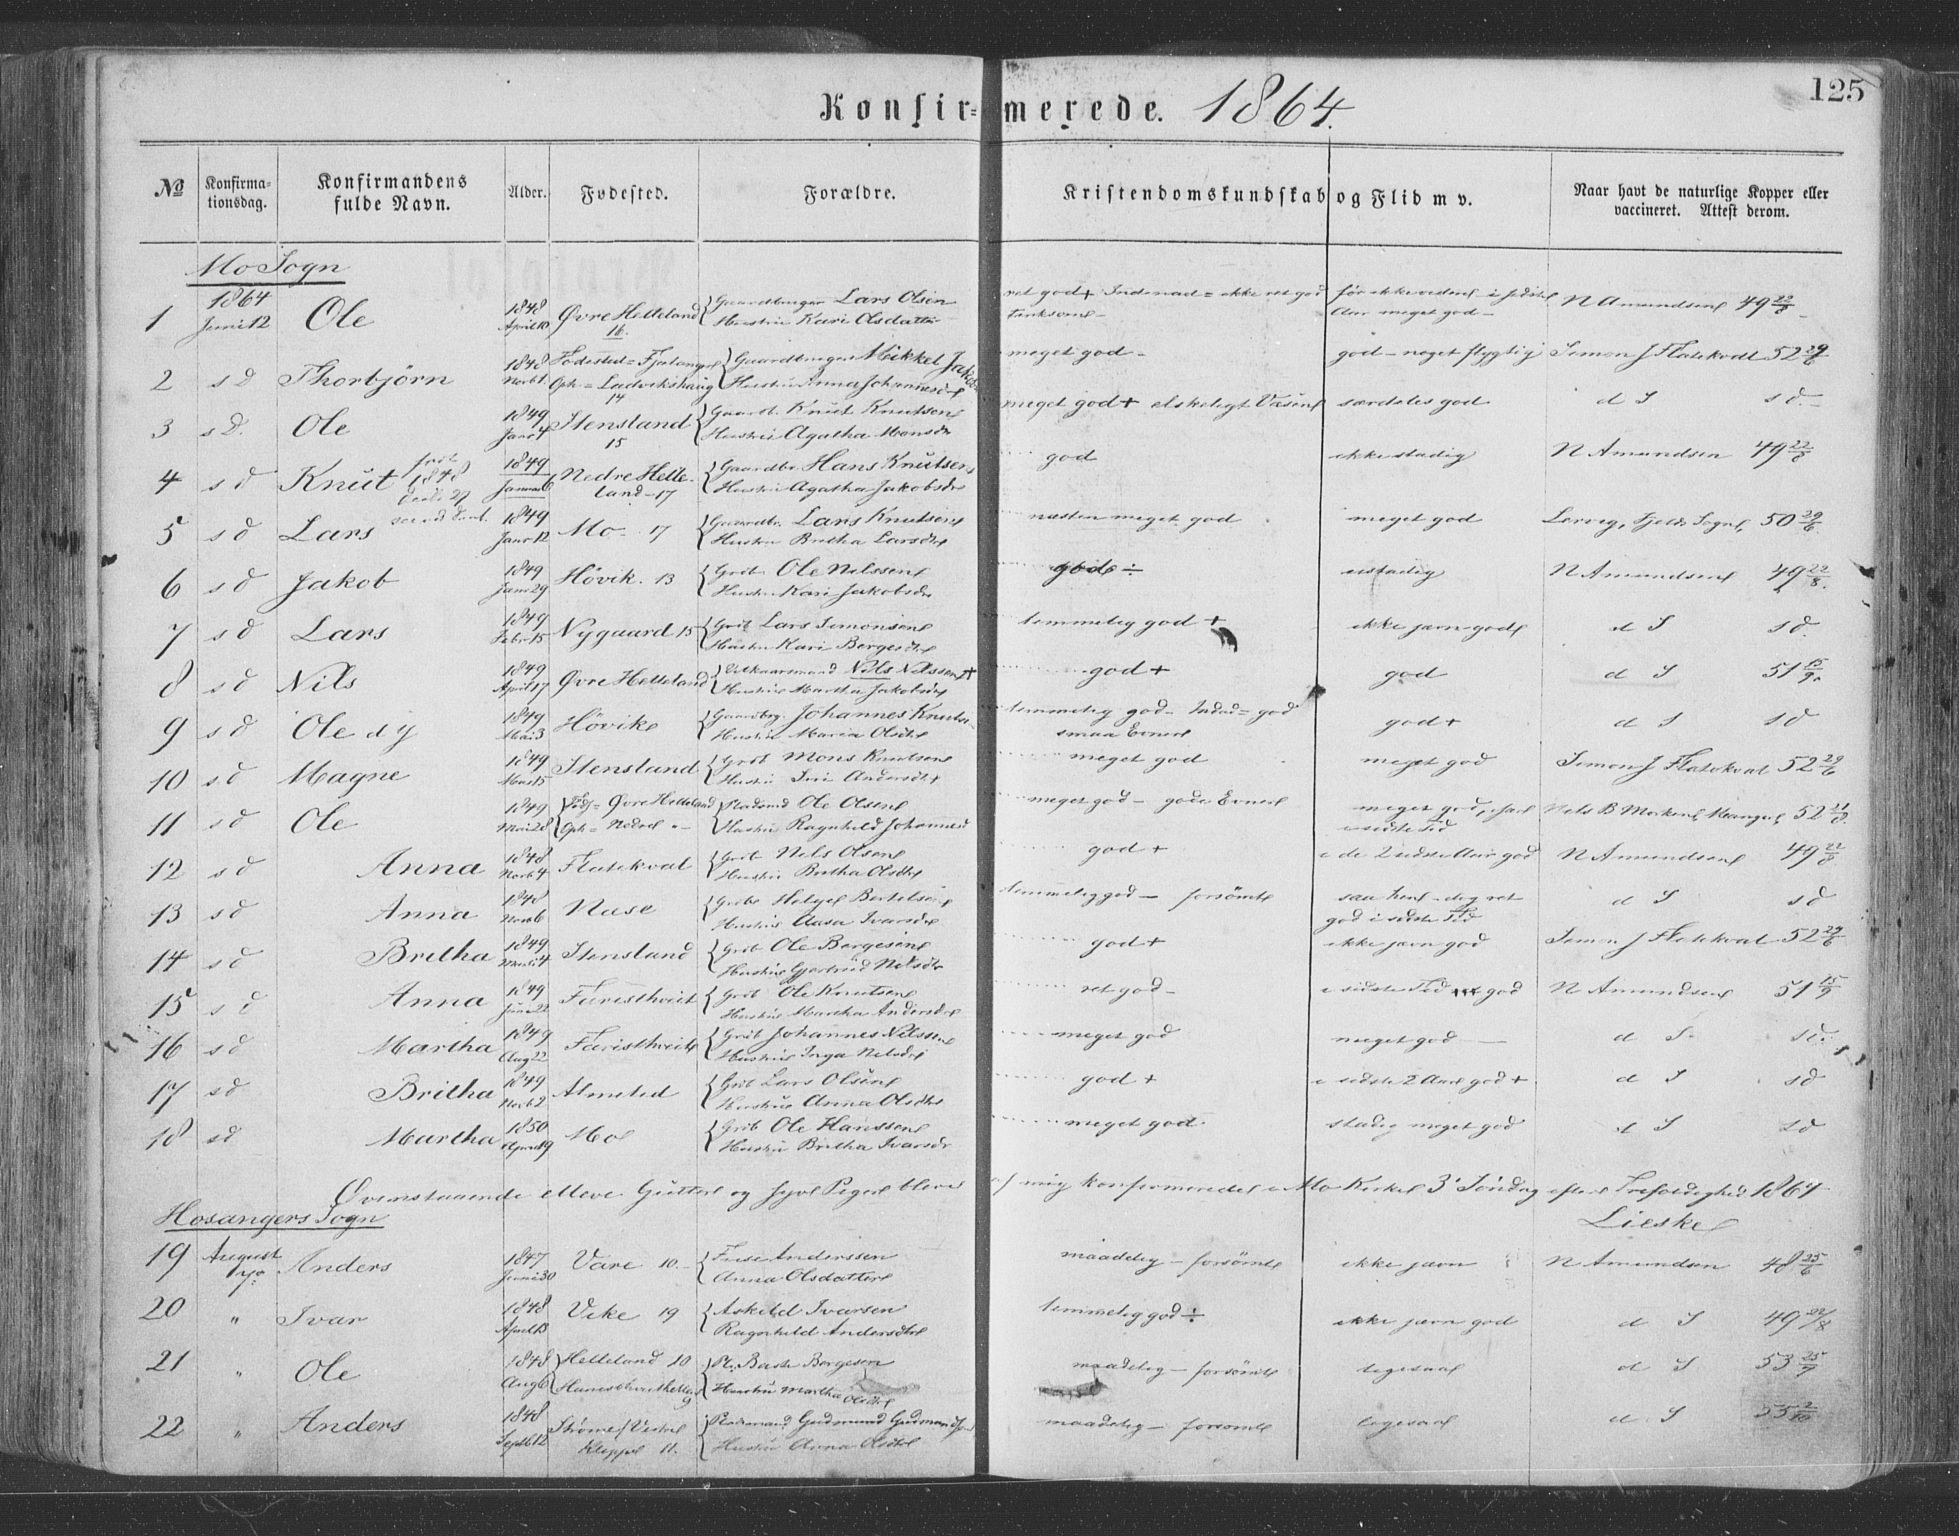 Konfirmerede. 1864.
125
No Konfirmationsdag. Konfirmandens fulde Navn. Alder. Fødested. Forældre. Kristendomskundskab og Flid m v. Naar havt de naturlige Kopper eller vaccineret. Attest derom.
Mo Sogn
1864
1 Juni 12 Ole 1848 April 10 Øvre Helleland 16. Gaardbruger Lars Olsen Hustru Kari Olsdatter ret god + ikke ret god meget god N Amundsen 49 22/8
2 s D Thorbjörn 1848 Novb 1. Fødested = Oph = Ludvikshaug 14 Gaardbruger Mikkel Jakobs Hustru Anna Johannesd meget god - god - noget flygtig Simon J Flatekval 52 29/6
3 s D Ole 1849 Janr 4 Stensland 15 Gaardb. Knut Knutsen Hustru Agatha Monsdr meget god + elskeligt Væsen særdeles god d S s d.
4 s d Knut født 1848 Decbr 27 1849 Januar 6 Nedre Helleland - 17 Gaardbr Hans Knutsen Hustru Agatha Jakobsdr god ikke stadig N Amundsen 49 22/8
5 s d Lars 1849 Janr 12 Mo - 17 Gaardbr. Lars Knutsen Hustru Britha Larsdtr næsten meget god meget god 50 29/6.
6 s d Jakob 1849 Janr 29 Hövik. 13 Grdb. Ole Nilssen Hustru Kari Jakobsdr god ÷ ustadig N Amundsen 49 22/8.
7 s d Lars 1849 Febr 15 Nygaard 15 Grdb Lars Simonsen Hustru Kari Bergesdtr temmelig god + ikke jævn god d S s d.
8 s d Nils 1849 April 17 Øvre Helleland Nils Nilssen + Hustru Martha Jakobsdr god + god d S 51 15/9.
9 s d Ole d y 1849 Mai 3 Hövike Gaardbrg. Johannes Knuts Hustru Maria Olsdtr temmelig god - Indad = god smaa Evner god + d S s d
10 s d Magne 1849 Mai 5 Stensland Grdb Mons Knutsen Hustru Andersdtr meget god meget god Simon J Flatekval 52 29/6
11 s d Ole 1849 Mai 28 Øvre Helleland Oph = Nedre Pladsmd Ole Olsen Hustru Ragnhild Johannesd meget god - gode Evner meget god, i sidste Tid Nels B Morken, Manger, 52 21/8.
12 s d Anna 1848 Novb 4 Flatekval Grdb Nels Olsen Hustru Britha Olsdtr god + i de 2 sidste Aar god N Amundsen 49 22/8
13 s d Anna 1848 Novb 6 Nase Grdb. Helge Bertelsen Hustru Aasa Ivarsdr temmelig god - forsömt saa hen - dog ret god i sidste Tid d S s d
14 s d Britha 1849 4 Stensland Grdb Ole Bergesen Hustru Gjertrud Nelsdtr god + ikke jævn god Simon J Flatekval 52 29/6
15 s d Anna 1849 Juni 22 Færesthveit Grdb Ole Knutsen Hustru Martha Andersdtr ret god - i sidste Tid god N Amundsen 51 15/9
16 s d Martha 1849 Aug 22 Færisthveit Grdb Johannes Nilssen Hustru Inga Nelsdr meget god meget god d S. s d.
17 s d Britha 1849 Novb 2 Almeted Grdb Lars Olsen Hustru Anna Olsdtr god + i sidste 2 Aar god + d S s d
18 s d Martha 1850 April 19 Mo Grdb Ole Hanssen Hustru Britha Ivarsdr meget god stadig meget god d S s d
Ovenstaaende elleve Gutter og syv Piger bleve af mig konfirmerede i Mo Kirke 3' Söndag efter Trefoldighed 1864
Lieske
Hosangers Sogn
19 August Anders 1847 Juni 30 Vare 10 - Anderssen Anna Olsdatter maadelig - forsömt ikke jævn N Amundsen 48 25/6
20 " Ivar 1848 April 13 Veke 19 Askild Ivarsen Ragnhild Andersdtr temmelig god ÷ ikke jævn god d S 49 22/8
21 " Ole 1848 Aug 6 Helleland 10 9 Pl. Baste Bergesen Hustru Martha Olsdtr maadelig - forsömt ligesaa d S 53 25/9
22 " Anders 1848 Septb 12 Strömes Vestre Kleppe 11. Pladsmand Gudmund Gudmundsen Hustru Anna Olsdtr maadelig - forsömt ligesaa d S 55 2/10